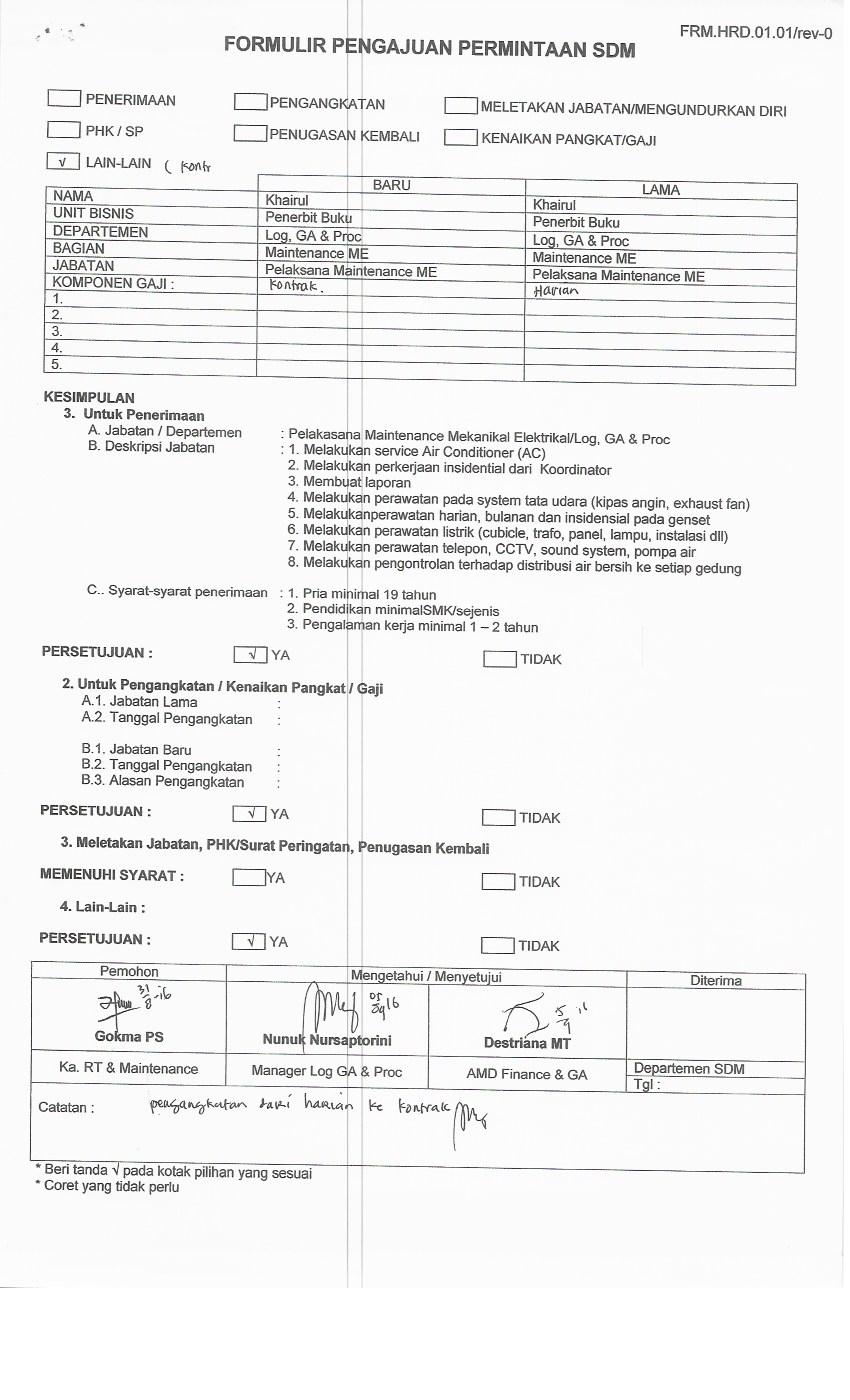 FRM.HRD.01.01/rev-0
FORMULIR PENGAJUAN PERMINTAAN SDM
PENERIMAAN PENGANGKATAN MELETAKAN JABATAN/MENGUNDURKAN DIRI
PHK / SP PENUGASAN KEMBALI KENAIKAN PANGKAT/GAJI
√ LAIN-LAIN ( Kontr
BARU LAMA
NAMA Khairul Khairul
UNIT BISNIS Penerbit Buku Penerbit Buku
DEPARTEMEN Log, GA & Proc Log, GA & Proc
BAGIAN Maintenance ME Maintenance ME
JABATAN Pelaksana Maintenance ME Pelaksana Maintenance ME
KOMPONEN GAJI : Kontrak. Harian
1.
2.
3.
4.
5.
KESIMPULAN
3. Untuk Penerimaan
A. Jabatan / Departemen : Pelakasana Maintenance Mekanikal Elektrikal/Log, GA & Proc
B. Deskripsi Jabatan : 1. Melakukan service Air Conditioner (AC)
2. Melakukan perkerjaan insidential dari Koordinator
3. Membuat laporan
4. Melakukan perawatan pada system tata udara (kipas angin, exhaust fan)
5. Melakukanperawatan harian, bulanan dan insidensial pada genset
6. Melakukan perawatan listrik (cubicle, trafo, panel, lampu, instalasi dll)
7. Melakukan perawatan telepon, CCTV, sound system, pompa air
8. Melakukan pengontrolan terhadap distribusi air bersih ke setiap gedung
C.. Syarat-syarat penerimaan : 1. Pria minimal 19 tahun
2. Pendidikan minimalSMK/sejenis
3. Pengalaman kerja minimal 1 – 2 tahun
PERSETUJUAN : √ YA TIDAK
2. Untuk Pengangkatan / Kenaikan Pangkat / Gaji
A.1. Jabatan Lama :
A.2. Tanggal Pengangkatan :
B.1. Jabatan Baru :
B.2. Tanggal Pengangkatan :
B.3. Alasan Pengangkatan :
PERSETUJUAN : √ YA TIDAK
3. Meletakan Jabatan, PHK/Surat Peringatan, Penugasan Kembali
MEMENUHI SYARAT : YA TIDAK
4. Lain-Lain :
PERSETUJUAN : √ YA TIDAK
Pemohon Mengetahui / Menyetujui Diterima
31/8-16 05/09 16 5/9 16
Gokma PS Nunuk Nursaptorini Destriana MT
Ka. RT & Maintenance Manager Log GA & Proc AMD Finance & GA Departemen SDM
Tgl :
Catatan : pengangkatan dari harian ke kontrak
* Beri tanda √ pada kotak pilihan yang sesuai
* Coret yang tidak perlu